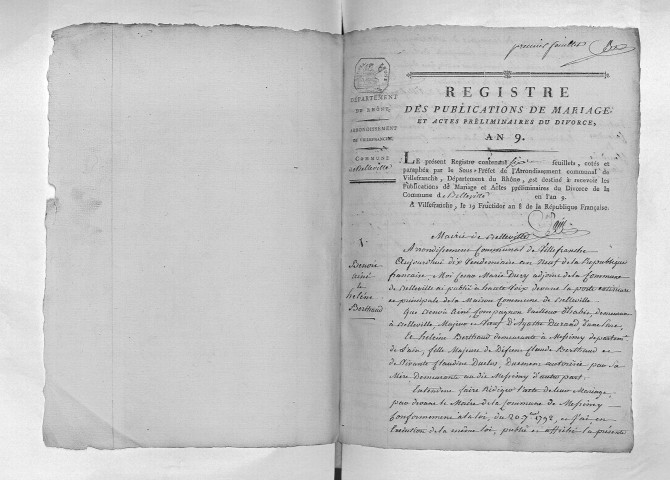 premier feuillet
REGISTRE
DES PUBLICATIONS DE MARIAGE
ET ACTES PRÉLIMINAIRES DU DIVORCE,
AN 9.
DÉPARTEMENT
DU RHÔNE,
ARRONDISSEMENT
DE VILLEFRANCHE,
COMMUNE
de Belleville
LE présent Registre contenant six feuillets, cotés et
paraphés par le Sous-Préfet de l'Arrondissement communal de
Villefranche, Département du Rhône, est destiné à recevoir les
Publications de Mariage et Actes préliminaires du Divorce de la
Commune d e Belleville en l'an 9.
A Villefranche, le 19 Fructidor an 8 de la République Française.
Mairie de Belleville
Arrondissement Communal de Villefranche
Aujourd'hui dix Vendemiaire an Neuf de la Republique
francaise, Moi Marie Dury adjoint de la Commune
de Belleville ai publié à haute voix devant la porte exterieure
et principale de la Maison Commune de Belleville
Que Benoit ainé Compagnon tailleur d'habits, demeurant
à Belleville, Majeur et Veuf d'Agathe Durand d'une part.
Et heléne Berthaud demeurante à Messimy departement
de l'ain, fille Majeure de Défunt Claude Berthaud et
de Vivante Claudine Duclos, Duement autorisée par sa
Mère Demeurante au dit Messimy d'autre part.
Entendent faire Rédiger l'acte de leur Mariage
par devant le Maire de la Commune de Messimy
Conformement à la loi, du 20 7bre 1792, et j'ai en
Exécution de la même loi, publié et affiché la présente
1
Benoit
ainé
&
heléne
Berthaud